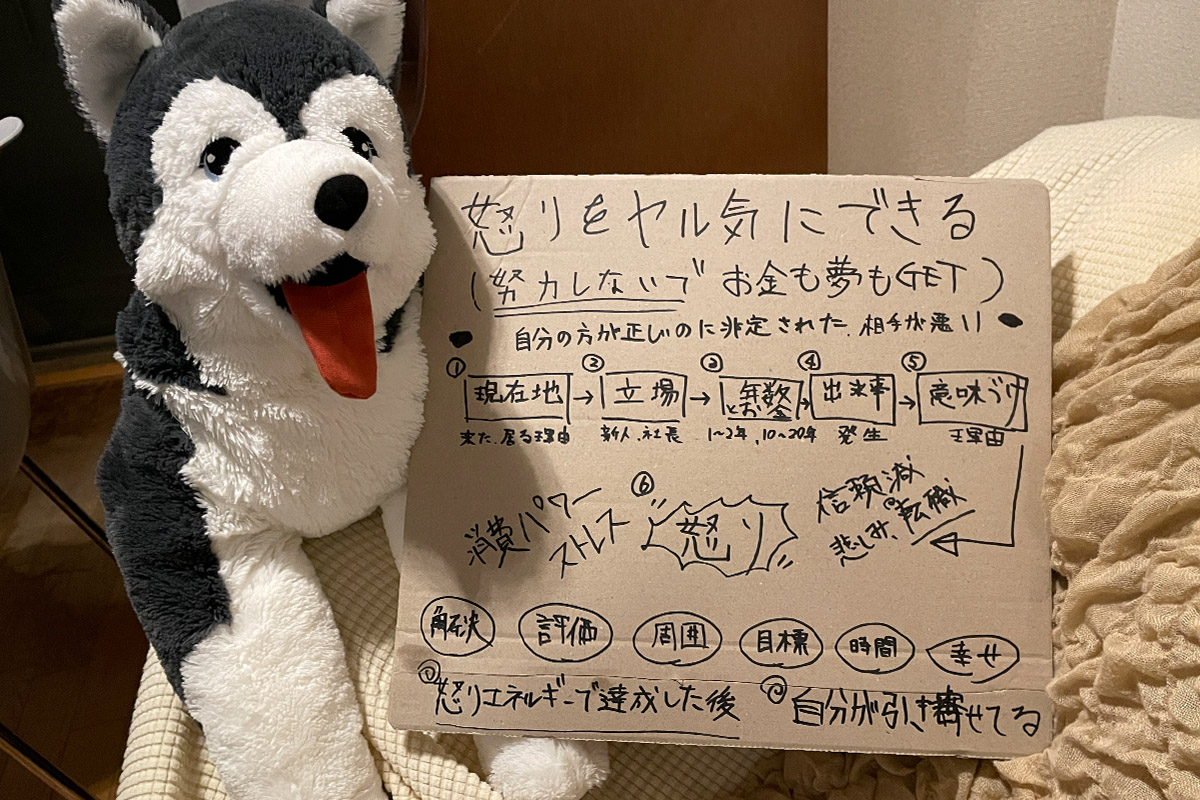 怒りをヤル気にできる
(努力しないで お金も夢もGET)
自分の方が正しいのに非定された、相手が悪い!!
① 現在地 → ② 立場 → ③ 年数とお金 → ④ 出来事 → ⑤ 意味づけ
来た、居る理由 新人、社長 1~2年、10~20年 発生 理由
消費パワー
ストレス
⑥ 怒り
信頼減
悲しみ、転職
解決 評価 周囲 目標 時間 幸せ
怒りエネルギーで達成した後 自分が引き寄せてる